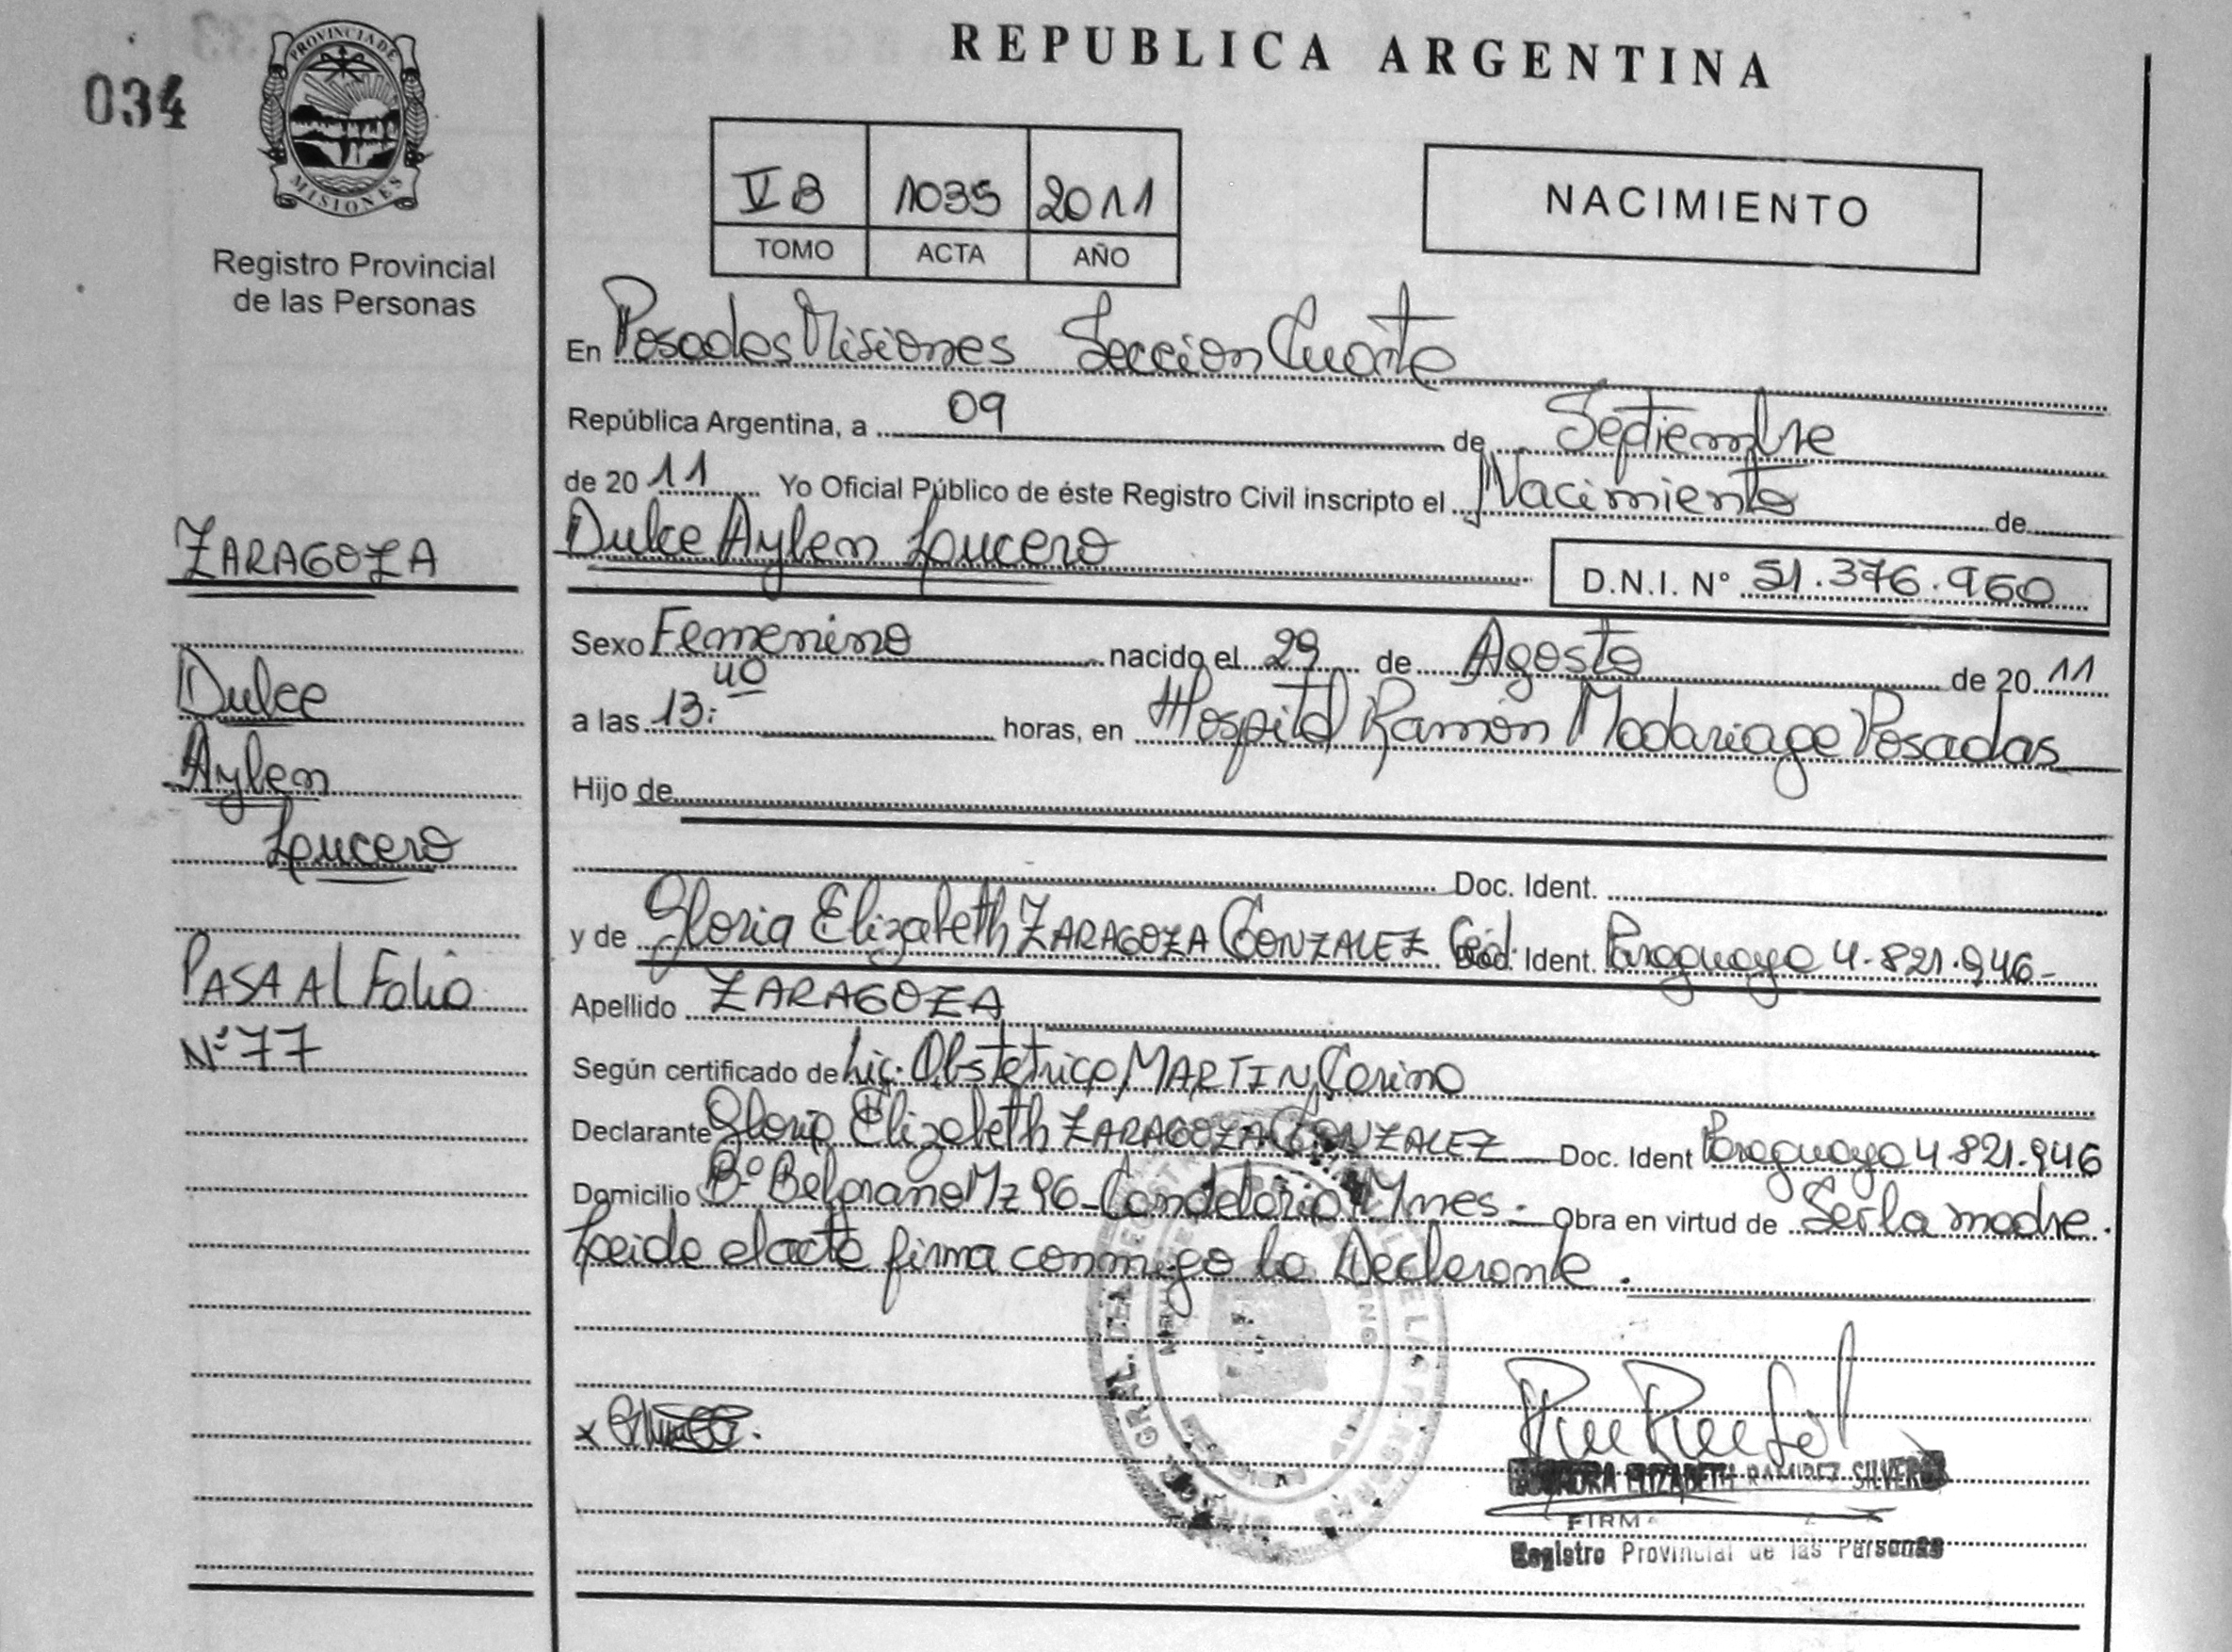 REPUBLICA ARGENTINA
034
PROVINCIA DE
MISIONES
Registro Provincial
de las Personas
V B 1035 2011
TOMO ACTA AÑO
NACIMIENTO
En Posadas Misiones Seccion Cuarta
República Argentina, a 09 de Septiembre
de 20 11 Yo Oficial Público de éste Registro Civil inscripto el Nacimiento de
Dulce Aylen Lucero
D.N.I. N° 51.376.960
Sexo Femenino nacido el 29 de Agosto de 20 11
a las 13:40 horas, en Hospital Ramón Madariaga Posadas
Hijo de
Doc. Ident.
y de Gloria Elizabeth ZARAGOZA GONZALEZ Céd. Ident. Paraguaya 4.821.946-
Apellido ZARAGOZA
Según certificado de Lic. Obstetrica MARTIN, Corina
Declarante Gloria Elizabeth ZARAGOZA GONZALEZ Doc. Ident Paraguaya 4.821.946
Domicilio B° Belgrano Mz 96-Candelaria Mnes. Obra en virtud de Ser la madre.
Leida el acta firma conmigo la Declarante.
ZARAGOZA
Dulce
Aylen
Lucero
PASA Al Folio
N° 77
ELIZABETH RAMIREZ
FIRMA
Registro Provincial de las Personas